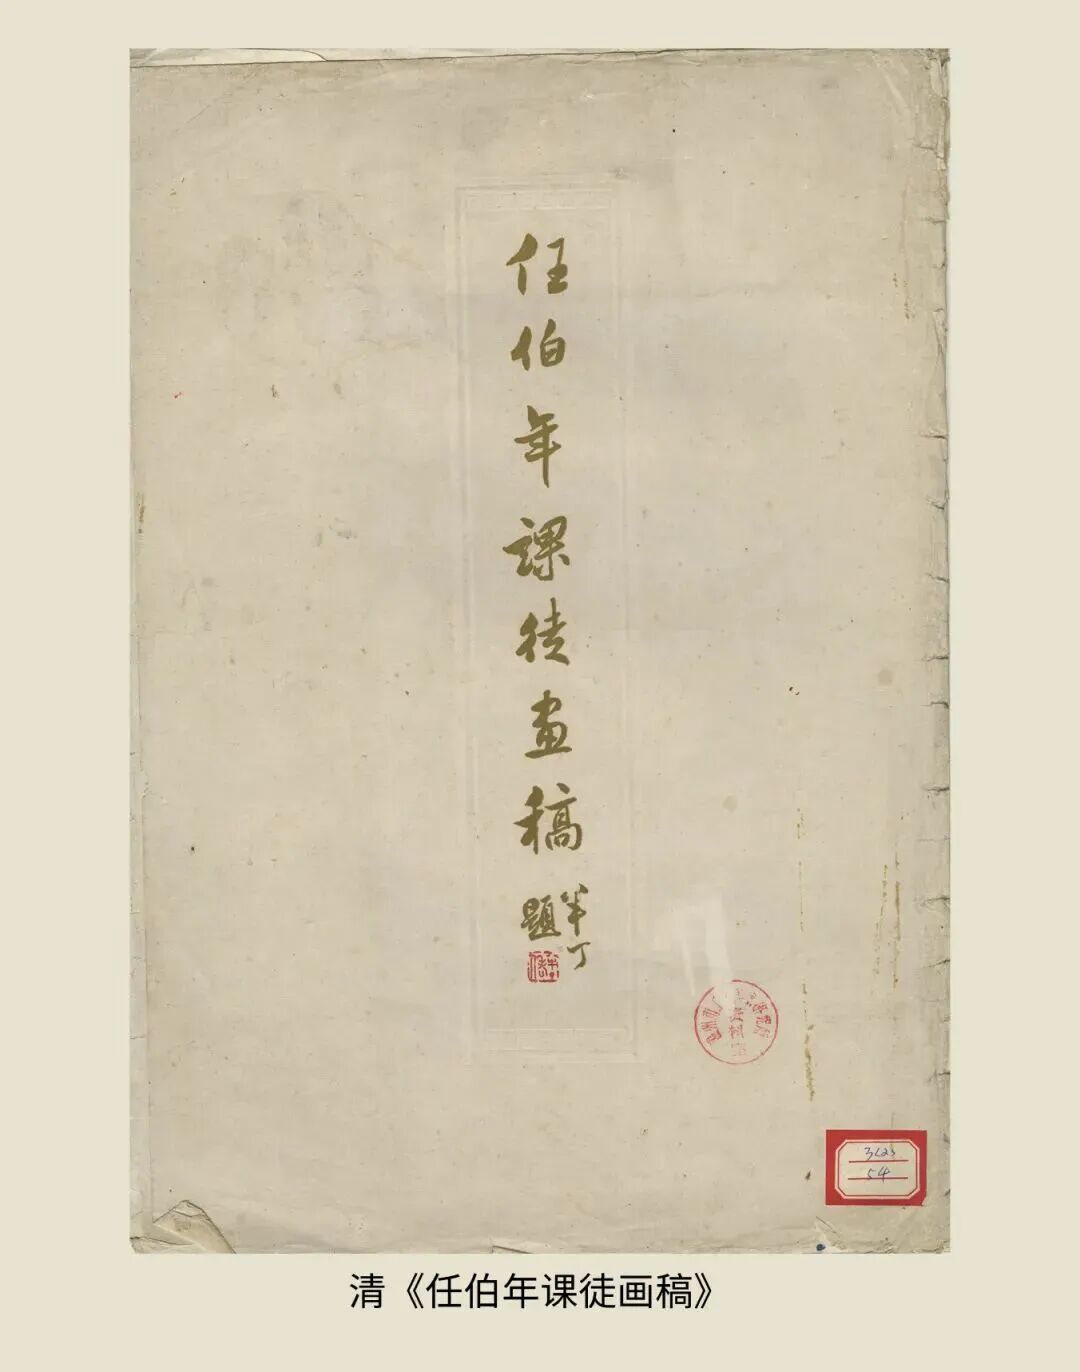 任伯年課徒畫稿
半丁
題
3623
54
清《任伯年课徒画稿》